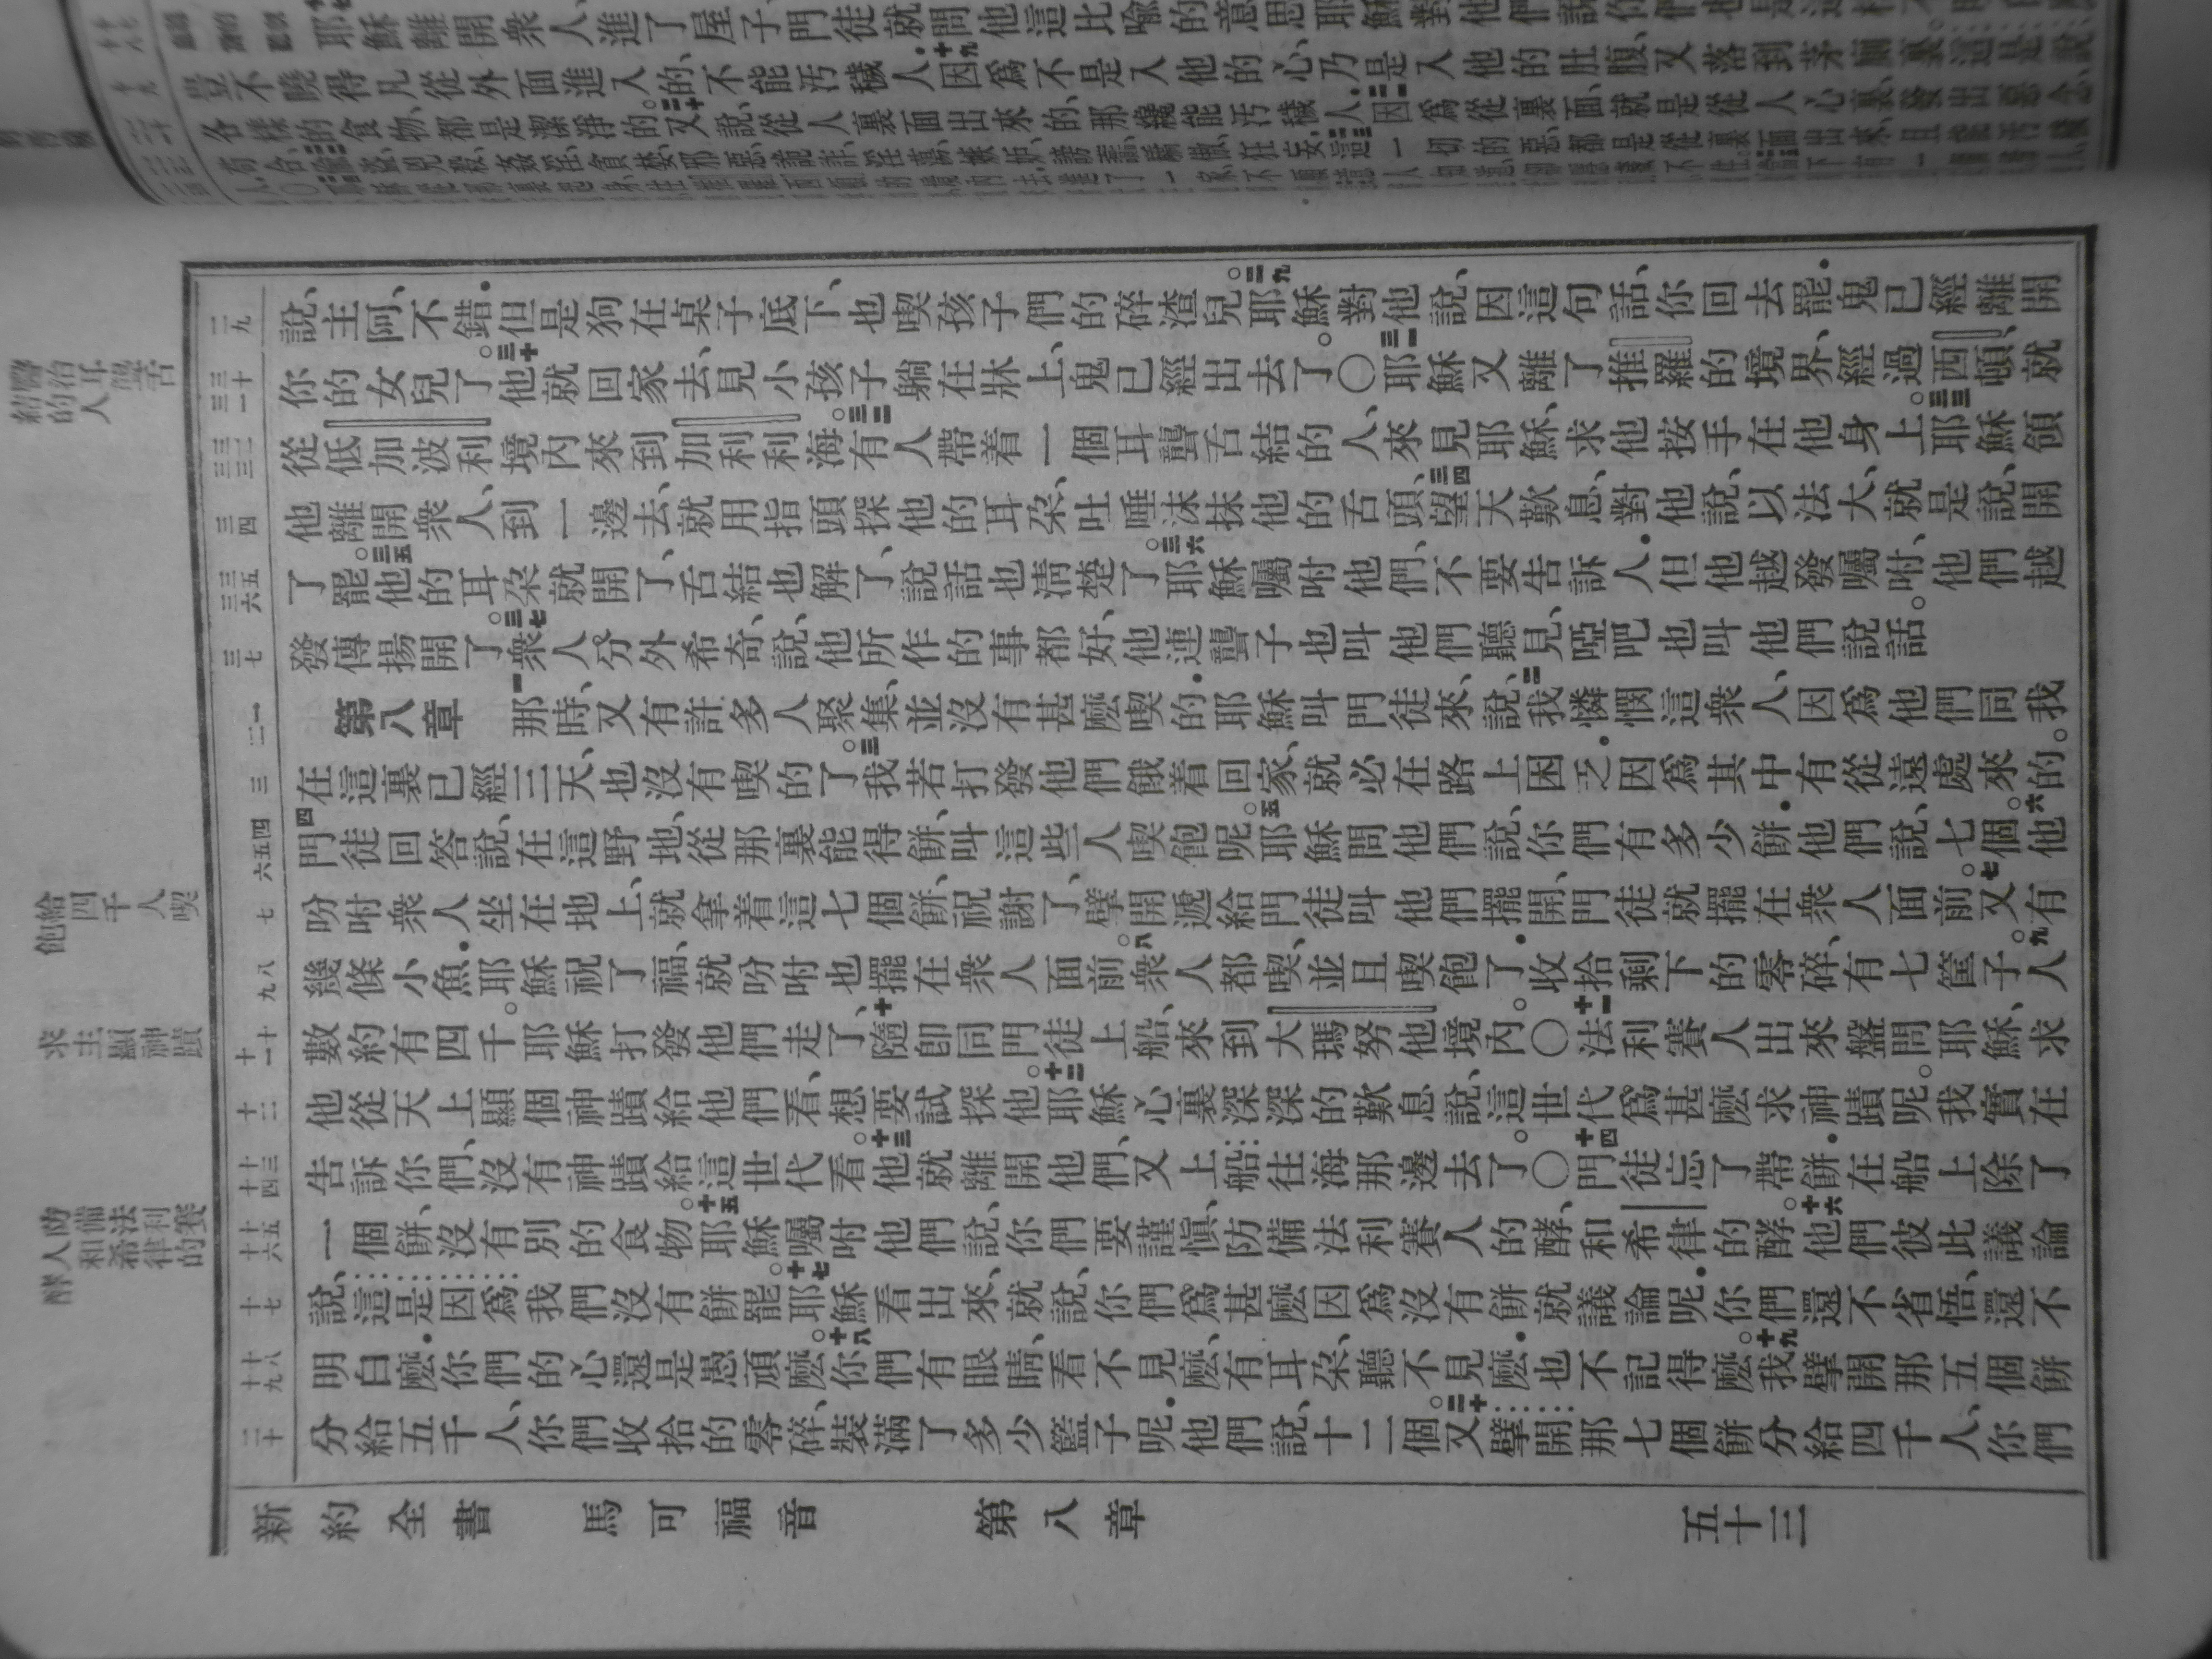 耶穌離開衆人進了屋子門徒就問他這比喻的意思耶穌對他們說你們也是這樣
豈不曉得凡從外面進入的、不能汚穢人.十九因爲不是入他的心、乃是入他的肚腹、又落到茅廁裏、這是說
各樣的食物、都是潔淨的。二十又說、從人裏面出來的、那纔能汚穢人.二一因爲從裏面、就是從人心裏、發出惡念、
說、主阿、不錯.但是狗在桌子底下、也喫孩子們的碎渣兒。二九耶穌對他說、因這句話、你回去罷.鬼已經離開
你的女兒了。三十他就回家去、見小孩子躺在牀上、鬼已經出去了。〇三一耶穌又離了推羅的境界、經過西頓、就
從低加波利境內來到加利利海。三二有人帶着一個耳聾舌結的人、來見耶穌、求他按手在他身上。三三耶穌領
他離開衆人、到一邊去、就用指頭探他的耳朵、吐唾沫抹他的舌頭、三四望天歎息、對他說、以法大、就是說、開
了罷。三五他的耳朵就開了、舌結也解了、說話也淸楚了。三六耶穌囑咐他們、不要告訴人.但他越發囑咐、他們越
發傳揚開了。三七衆人分外希奇、說、他所作的事都好、他連聾子也叫他們聽見、啞吧也叫他們說話。
第八章 一那時、又有許多人聚集、並沒有甚麼喫的.耶穌叫門徒來、說、二我憐憫這衆人、因爲他們同我
在這裏已經三天、也沒有喫的了。三我若打發他們餓着回家、就必在路上困乏.因爲其中有從遠處來的。
四門徒回答說、在這野地、從那裏能得餅、叫這些人喫飽呢。五耶穌問他們說、你們有多少餅.他們說、七個。六他
吩咐衆人坐在地上、就拿着這七個餅、祝謝了、擘開遞給門徒叫他們擺開、門徒就擺在衆人面前。七又有
幾條小魚.耶穌祝了福、就吩咐也擺在衆人面前。八衆人都喫、並且喫飽了.收拾剩下的零碎、有七筐子。九人
數約有四千。耶穌打發他們走了、十隨卽同門徒上船、來到大瑪努他境內。〇十一法利賽人出來盤問耶穌、求
他從天上顯個神蹟給他們看、想要試探他。十二耶穌心裏深深的歎息、說、這世代爲甚麼求神蹟呢。我實在
告訴你們、沒有神蹟給這世代看。十三他就離開他們、又上船往海那邊去了。〇十四門徒忘了帶餅.在船上除了
一個餅、沒有別的食物。十五耶穌囑咐他們說、你們要謹愼、防備法利賽人的酵、和希律的酵。十六他們彼此議論
說、這是因爲我們沒有餅罷。十七耶穌看出來、就說、你們爲甚麼因爲沒有餅就議論呢.你們還不省悟、還不
明白麼.你們的心還是愚頑麼。十八你們有眼睛、看不見麼、有耳朵、聽不見麼.也不記得麼。十九我擘開那五個餅
分給五千人、你們收拾的零碎、裝滿了多少籃子呢.他們說、十二個。二十又擘開那七個餅分給四千人、你們
新約全書 馬可福音 第八章 五十三
二九
三十 三一
三二 三三
三四
三五 三六
三七
一 二
三
四 五 六
七
八 九
十 十一
十二
十三 十四
十五 十六
十七
十八 十九
二十
醫治耳聾舌結的人
給四千人喫飽
求主顯神蹟
防備法利賽人和希律的酵